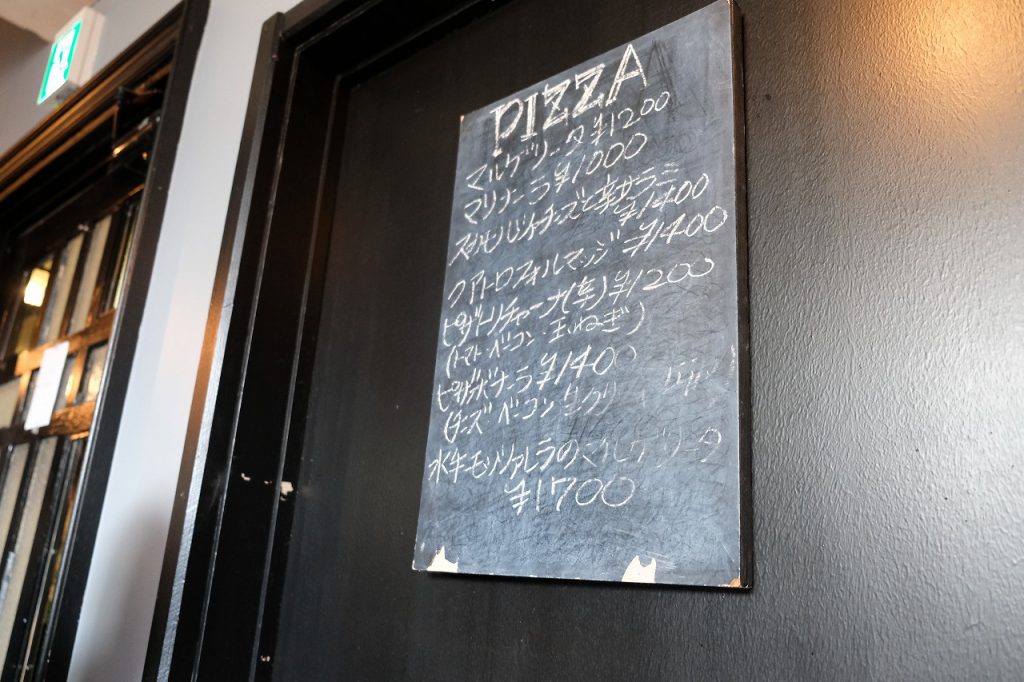 PIZZA
マルゲリータ ¥1200
マリナーラ ¥1000
スカモルツァチーズと辛サラミ
¥1400
クアトロフォルマッジ ¥1400
ピザトリチャーナ(辛) ¥1200
(トマト・ベーコン・玉ねぎ)
ピザボナーラ ¥1400
(チーズ ベーコン
水牛モッツァレラのマルゲリータ
¥1700